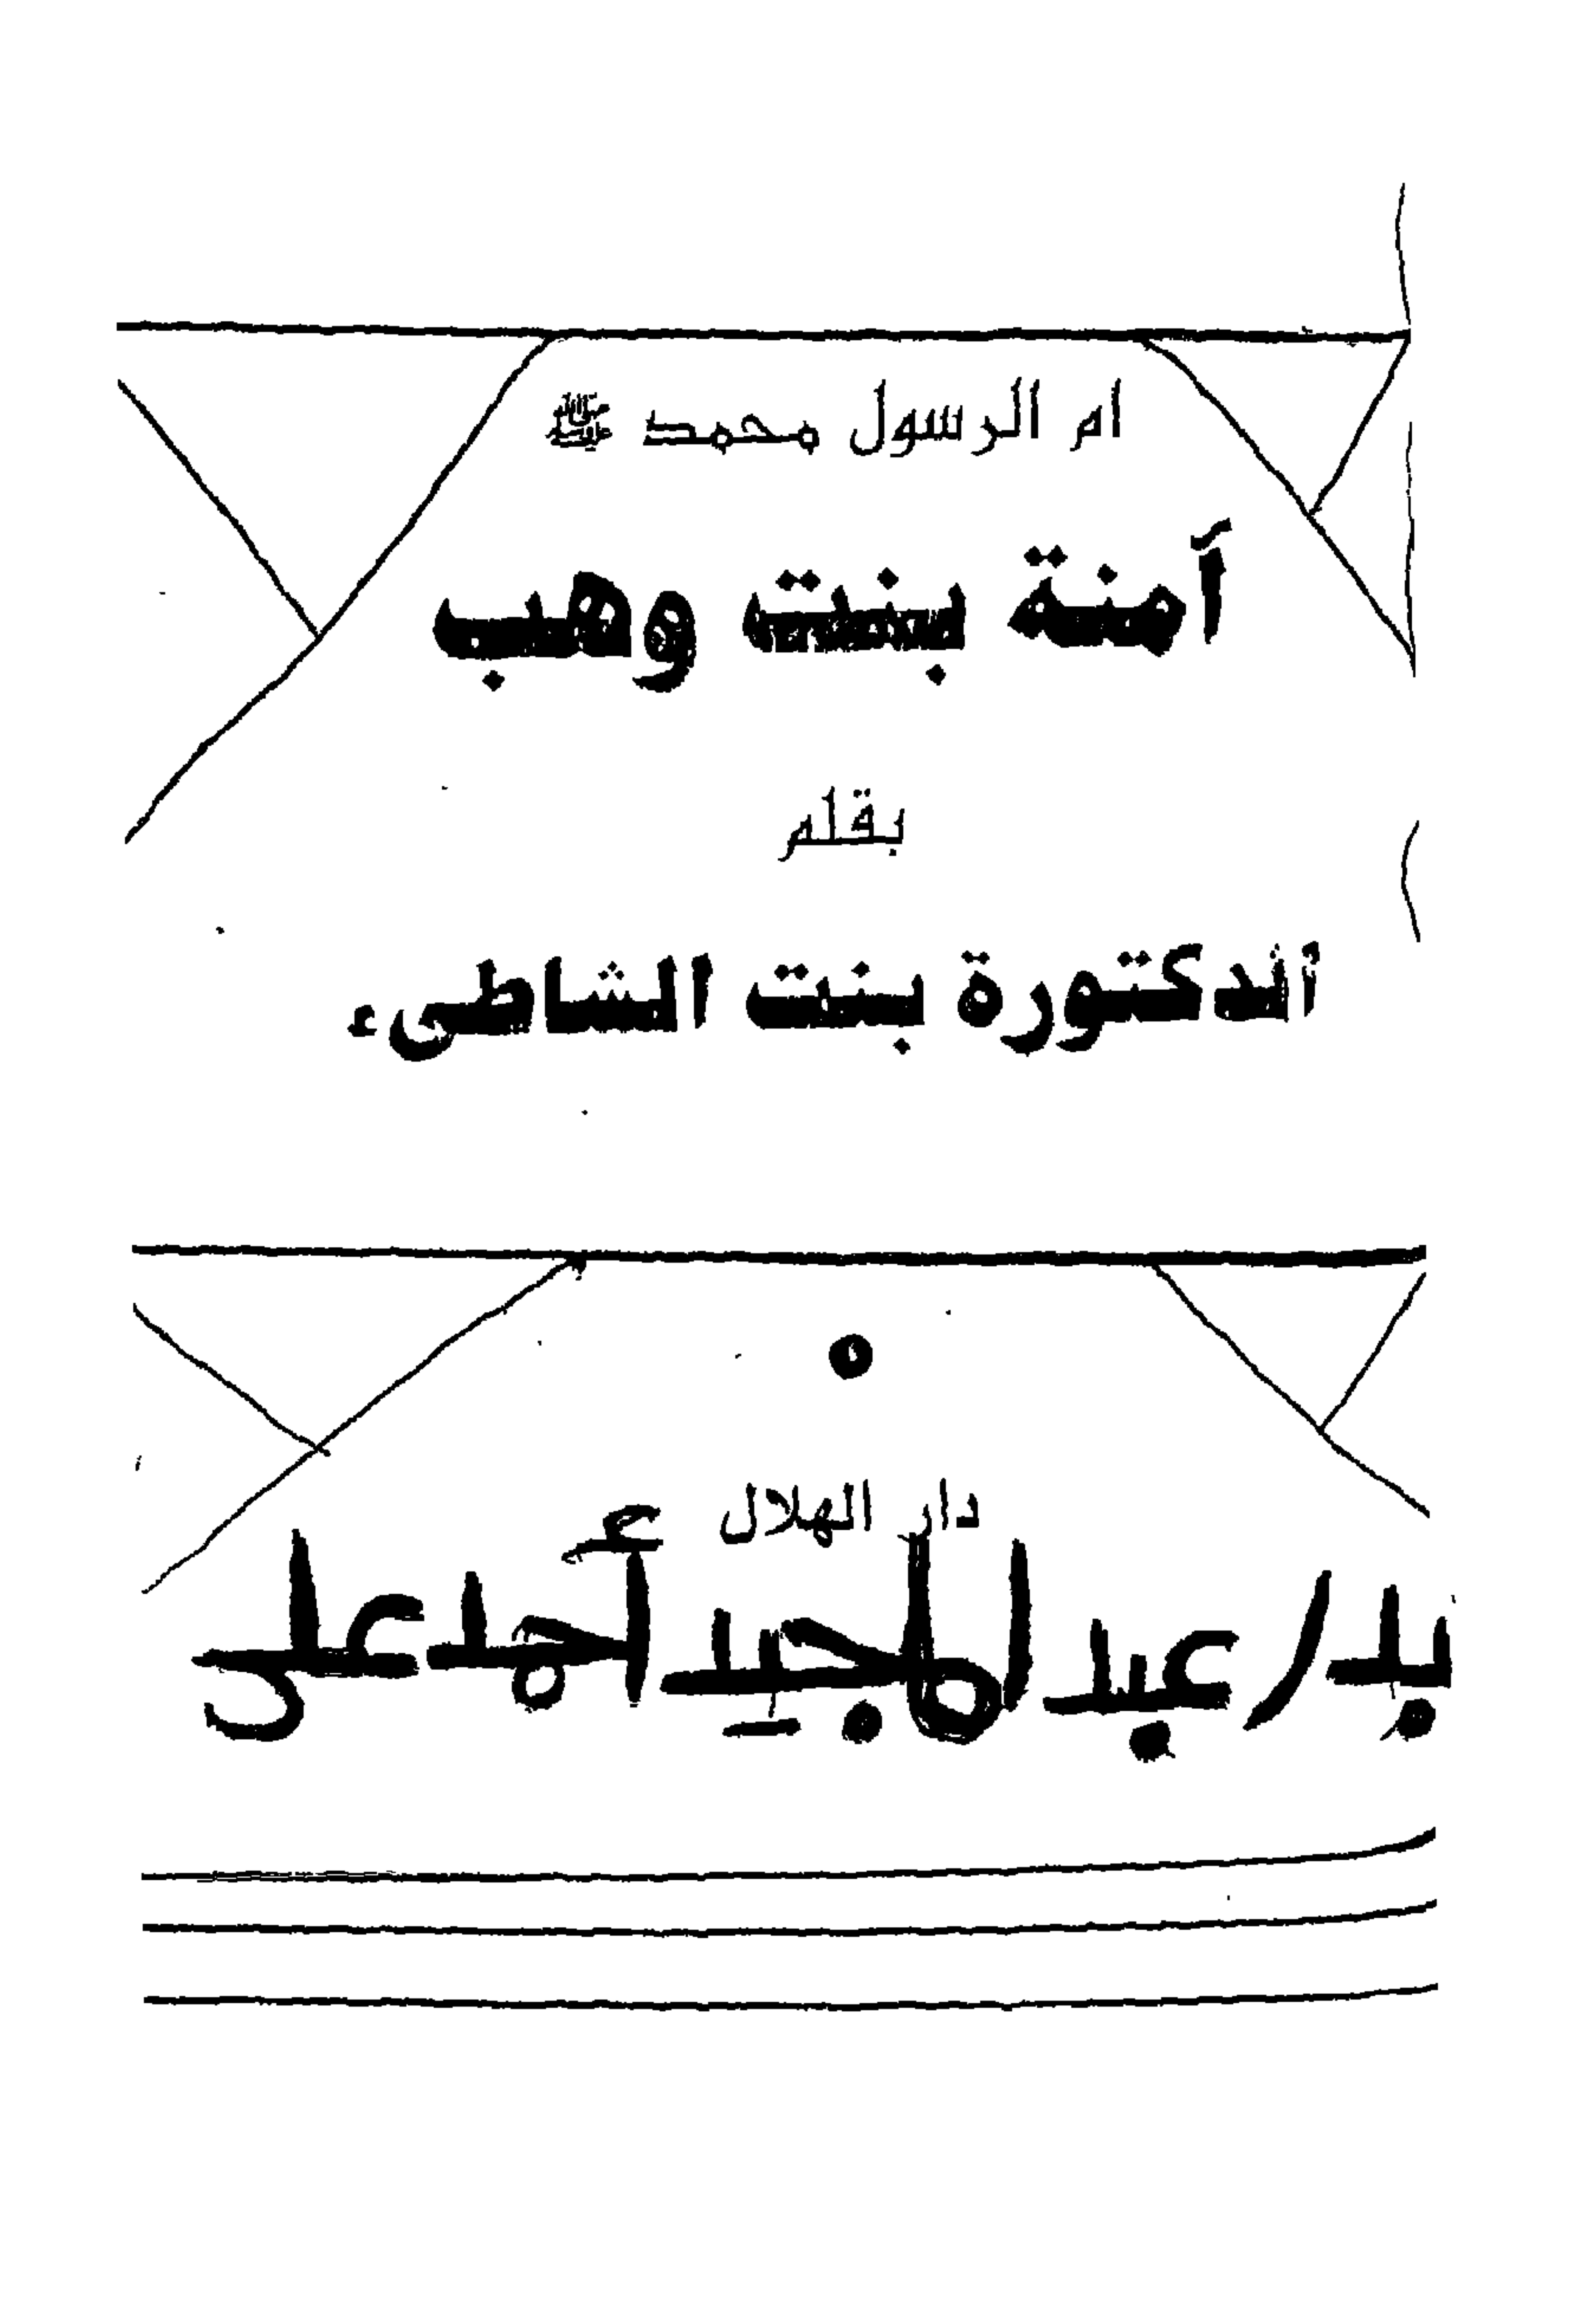 ام الرسول محمد ﷺ
آمنة بنت وهب
بقلم
الدكتورة بنت الشاطىء
دار الهلال
بدر عبد المجيد أحمد على